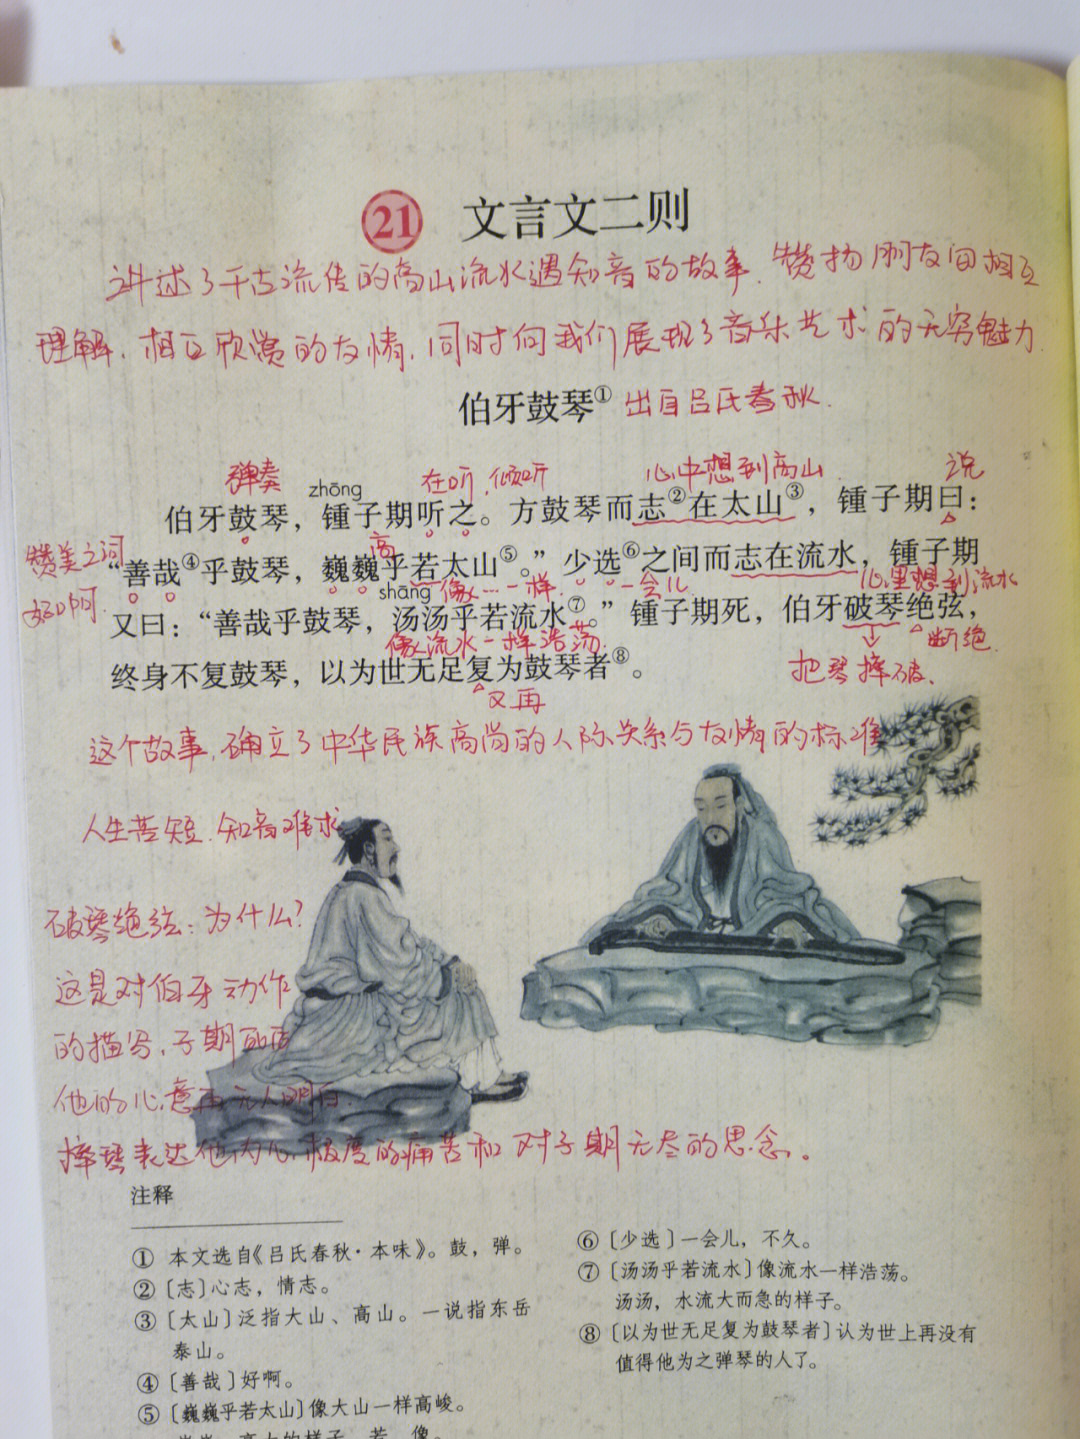 21 文言文二则
讲述了千古流传的高山流水遇知音的故事.赞扬朋友间相互
理解.相互欣赏的友情.同时向我们展现了音乐艺术的无穷魅力.
伯牙鼓琴① 出自吕氏春秋.
弹奏 zhōng 在听.倾听 心中想到高山 说
伯牙鼓琴，锺子期听之。方鼓琴而志②在太山③，锺子期曰：
赞美之词 高
“善哉④乎鼓琴，巍巍乎若太山⑤。”少选⑥之间而志在流水，锺子期
好啊. shāng 像…一样. 一会儿 心里想到流水
又曰：“善哉乎鼓琴，汤汤乎若流水⑦。”锺子期死，伯牙破琴绝弦，
像流水一样浩荡. 断绝.
终身不复鼓琴，以为世无足复为鼓琴者⑧。 把琴摔破、
又再
这个故事.确立了中华民族高尚的人际关系与友情的标准
人生苦短.知音难求
破琴绝弦：为什么？
这是对伯牙动作
的描写.子期死后
他的心意再无人明白.
摔琴表达他内心极度的痛苦和对子期无尽的思念。
注释
① 本文选自《吕氏春秋·本味》。鼓，弹。
②〔志〕心志，情志。
③〔太山〕泛指大山、高山。一说指东岳
泰山。
④〔善哉〕好啊。
⑤〔巍巍乎若太山〕像大山一样高峻。
巍巍，高大的样子。若，像。
⑥〔少选〕一会儿，不久。
⑦〔汤汤乎若流水〕像流水一样浩荡。
汤汤，水流大而急的样子。
⑧〔以为世无足复为鼓琴者〕认为世上再没有
值得他为之弹琴的人了。